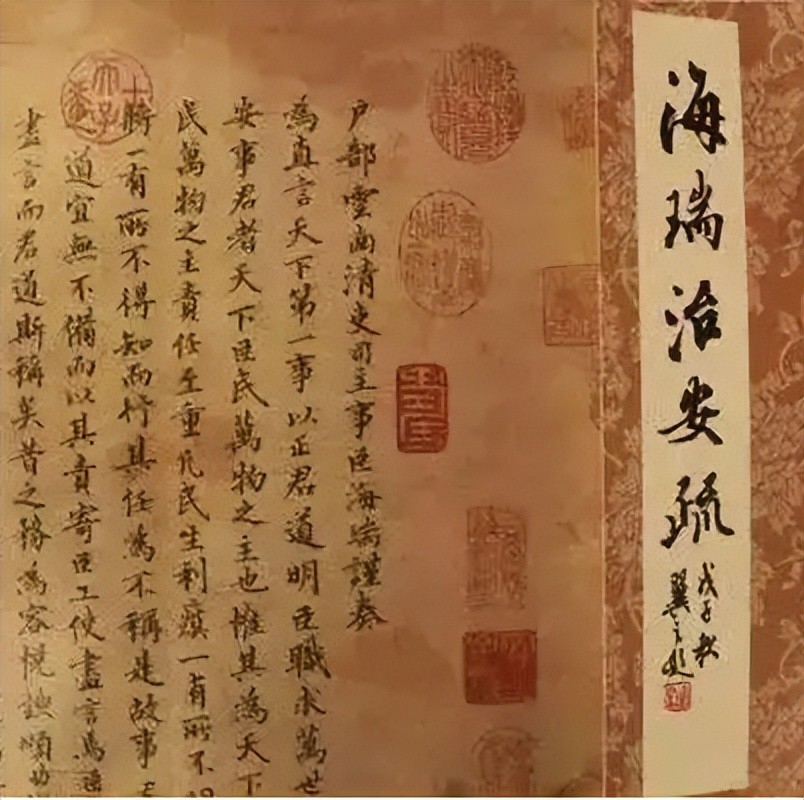 海瑞治安疏
戊子秋
户部雲南清吏司主事臣海瑞謹奏
為直言天下第一事以正君道明臣職求萬世
安事君者天下臣民萬物之主也惟其為天下
民萬物之主責任至重凡民生利瘼一有所不
將一有所不得知而行其任為不稱是故事
道宜無不備而以其責寄臣工使盡言焉
盡言而君道斯稱矣昔之務為容悅諛順